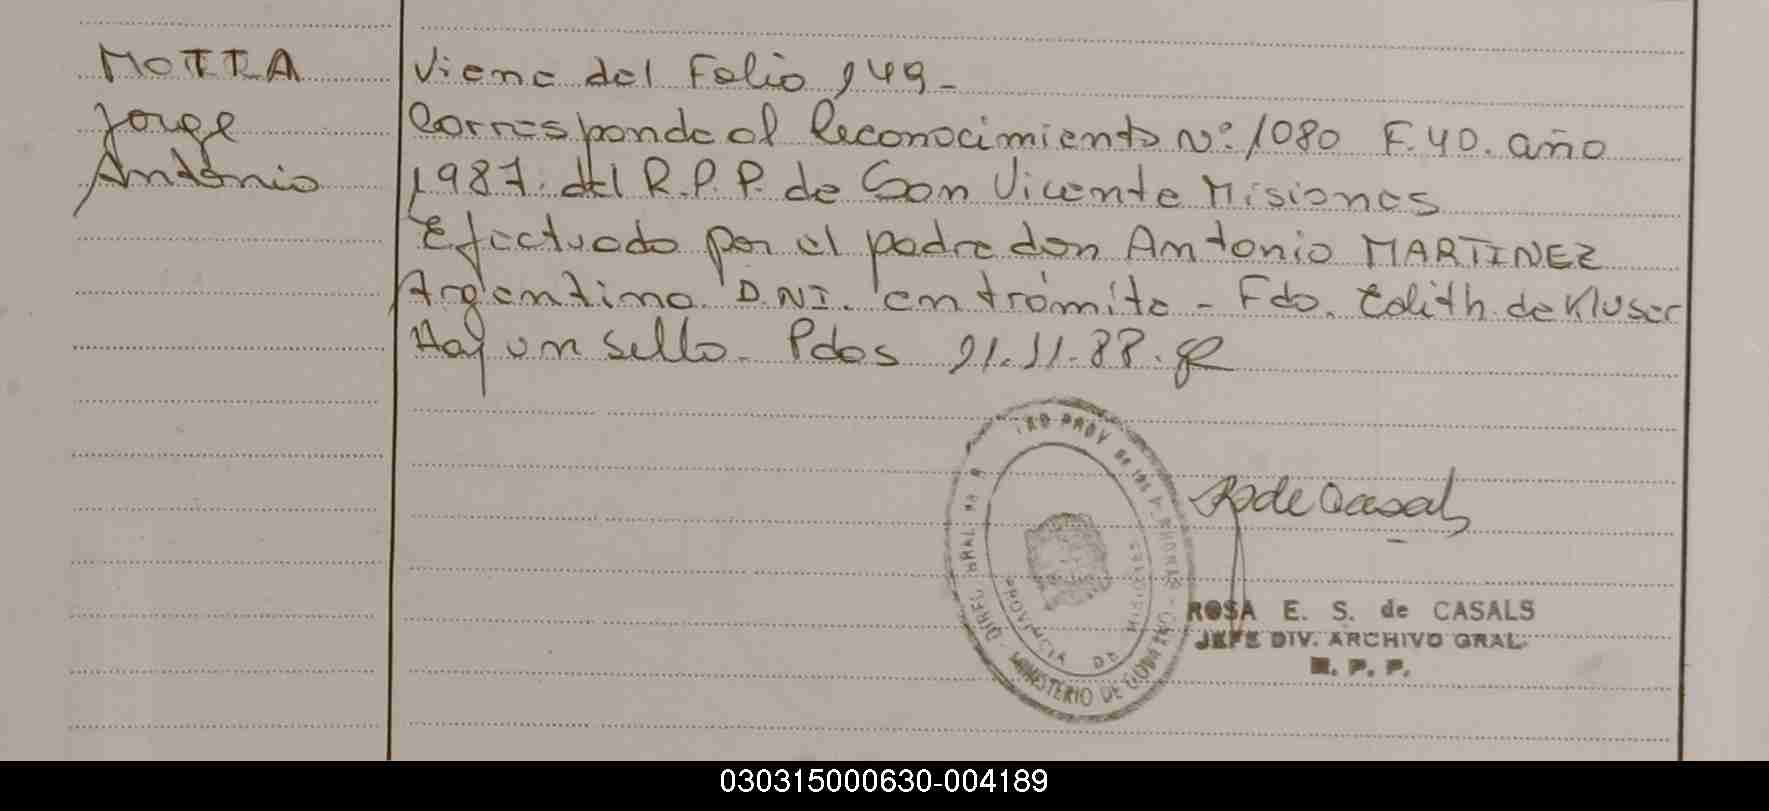 MOTTA
Jorge
Antonio
Viene del Folio 149-
Corresponde al Reconocimiento Nº: 1080 F. 40. año
1987. del R.P.P. de San Vicente Misiones
Efectuado por el padre don Antonio MARTINEZ
Argentino D.N.I. en trámite - Fdo. Edith de Kluser
Hay un sello. Pdas 21.11.88.
DIREC. GRAL DEL R PROV DE LAS PERSONAS - MINISTERIO DE GOBIERNO
PROVINCIA DE MISIONES
R de Casals
ROSA E. S. de CASALS
JEFE DIV. ARCHIVO GRAL.
R. P. P.
030315000630-004189